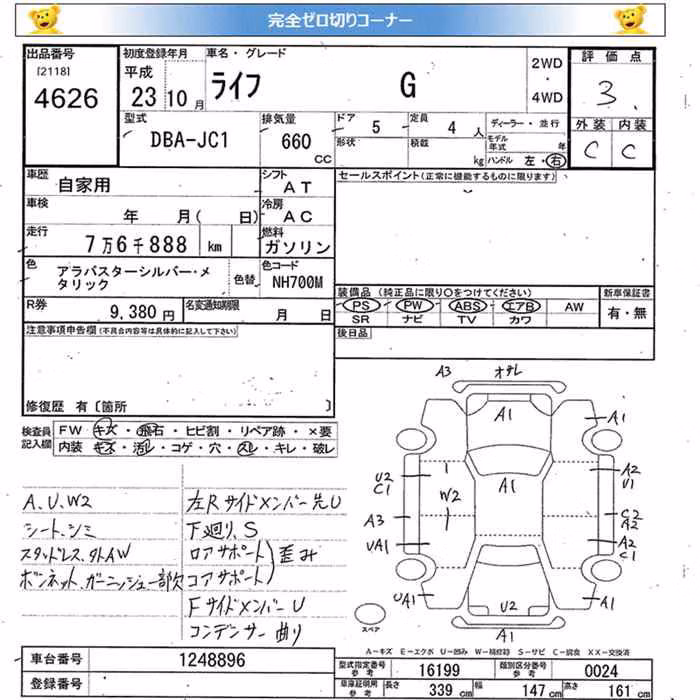 完全ゼロ切りコーナー
出品番号
[2118]
4626
初度登録年月
平成
23 10 月
車名・グレード
ライフ G
2WD
・
4WD
評価点
3.
外装 内装
C C
型式
DBA-JC1
排気量
660
CC
ドア
5
定員
4 人
形状
積載
kg
ディーラー・並行
モデル年式 年
ハンドル 左・右
車歴
自家用
シフト
AT
車検
年 月( 日)
冷房
AC
走行
7万6千888 km
燃料
ガソリン
色
アラバスターシルバー・メタリック
色替
色コード
NH700M
R券
9,380円
名変通知期限
月 日
セールスポイント(正常に機能するものに限ります)
装備品 (純正品に限り○をつけてください)
PS PW ABS エアB AW
SR ナビ TV カワ
新車保証書
有・無
後日品
注意事項申告欄(不具合内容等は具体的に記入して下さい)
修復歴 有〔箇所 〕
検査員記入欄
FW キズ・飛石・ヒビ割・リペア跡・×要
内装 キズ・汚レ・コゲ・穴・スレ・キレ・破レ
A,U,W2
シート、シミ
スタッドレス、外AW
ボンネット、ガーニッシュ一部欠
左Rサイドメンバー先U
下廻り、S
ロアサポート
コアサポート
歪み
Fサイドメンバー U
コンデンサー曲り
A3
A1
A1
U2
C1
A2
U1
A1
W2
A3
C2
A2
UA1
A2
C1
UA1
U2
A1
A1
スペア
A-キズ E-エクボ U-凹み W-補修跡 S-サビ C-腐食 XX-交換済
車台番号
1248896
登録番号
型式指定番号
参考
16199
類別区分番号
参考
0024
車庫証明用
参考
長さ
339 cm
幅
147 cm
高さ
161 cm